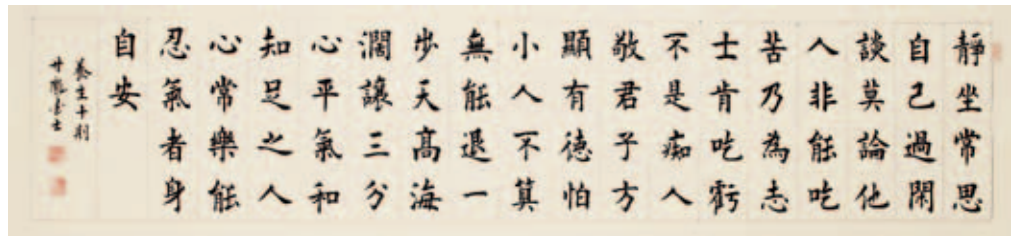 靜坐常思
自己過閑
談莫論他
人非能吃
苦乃為志
士肯吃虧
不是痴人
敬君子方
顯有德怕
小人不算
無能退一
步天高海
濶讓三分
心平氣和
知足之人
心常樂能
忍氣者身
自安
養生十則